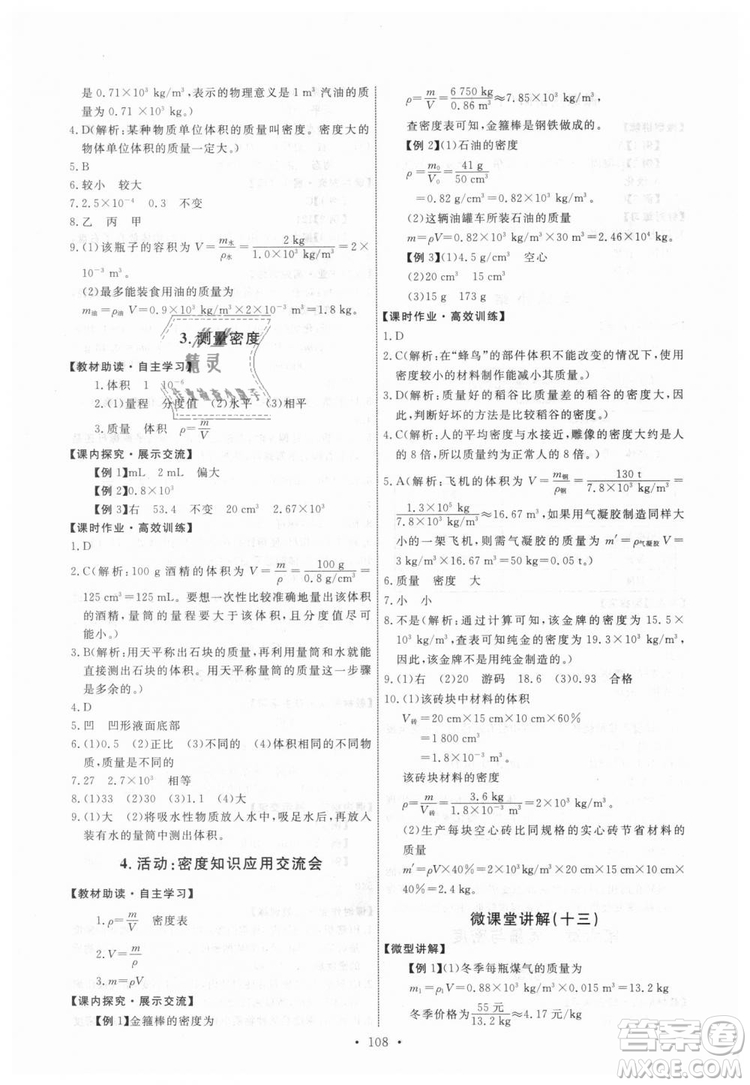 是 0.71×10³ kg/m³,表示的物理意义是 1 m³ 汽油的质
量为 0.71×10³ kg。)
4.D(解析:某种物质单位体积的质量叫密度。密度大的
物体单位体积的质量一定大。)
5.B
6.较小 较大
7.2.5×10⁻⁴ 0.3 不变
8.乙 丙 甲
9.(1)该瓶子的容积为 V=m水/ρ水=2 kg/1.0×10³ kg/m³=2×
10⁻³ m³。
(2)最多能装食用油的质量为
m油=ρ油 V=0.9×10³ kg/m³×2×10⁻³ m³=1.8 kg。
3.测量密度
【教材助读·自主学习】
1.体积 1 10⁻⁶
2.(1)量程 分度值 (2)水平 (3)相平
3.质量 体积 ρ=m/V
【课内探究·展示交流】
【例 1】mL 2 mL 偏大
【例 2】0.8×10³
【例 3】右 53.4 不变 20 cm³ 2.67×10³
【课时作业·高效训练】
1.D
2.C(解析:100 g 酒精的体积为 V=m/ρ=100 g/0.8 g/cm³=
125 cm³=125 mL。为了能一次性比较准确地量出该体积
的酒精,量筒的量程要大于该体积,且分度值要尽可
能小。)
3.B(解析:用天平称出石块的质量,用量筒和水通过排水
法测出石块的体积。用天平测石块的质量这一步骤
是多余的。)
4.D
5.凹 凹形液面底部
6.(1)0.5 (2)正比 (3)密度 (4)体积相同时,质量不
同(或质量相同时,体积不同)
7.27 2.7×10³ 相等
8.(1)33 (2)20 (3)30 1.1 (4)大
9.(1)大 (2)将吸水性物质放入水中,吸足水后,再放入
装有水的量筒中测出体积。
4.活动:密度知识应用交流会
【教材助读·自主学习】
1.ρ=m/V 密度表
2.V=m/ρ
3.m=ρV
【课内探究·展示交流】
【例 1】金箍棒的密度为
ρ=m/V=6 750 kg/0.86 m³≈7.85×10³ kg/m³,
查密度表可知,金箍棒是钢铁做成的。
【例 2】(1)石油的密度
ρ=m₀/V₀=41 g/50 cm³
=0.82 g/cm³=0.82×10³ kg/m³
(2)这辆油罐车所装石油的质量
m=ρV=0.82×10³ kg/m³×30 m³=2.46×10⁴ kg。
【例 3】(1)4.5 g/cm³ 空心
(2)20 cm³ 15 cm³
(3)15 g 173 g
【课时作业·高效训练】
1.D
2.C(解析:在“蜂鸟”的部件体积不能改变的情况下,用
密度较小的材料制作能尽量减小质量。)
3.C(解析:质量好的稻谷比质量差的稻谷的密度大,因
此,判断好坏的方法是比较稻谷的密度。)
4.C(解析:人的平均密度与水接近,雕像的密度大约是人
的 8 倍。所以质量约为正常人的 8 倍。)
5.A(解析:飞机的体积 V=m钢/ρ钢=130 t/7.8×10³ kg/m³=
1.3×10⁵ kg/7.8×10³ kg/m³≈16.67 m³,如果用气凝胶制造同样大
小的一架飞机,则需气凝胶的质量 m′=ρ气凝胶 V=
3 kg/m³×16.67 m³=50 kg=0.05 t。)
6.质量 密度 大
7.小 小
8.不是(解析:通过计算可知,该金牌的密度为 15.5×
10³ kg/m³,查表可知纯金的密度为 19.3×10³ kg/m³,
所以,该金牌不是用纯金制造的。)
9.(1)右 (2)20 游码 18.6 (3)0.93 合格
10.(1)该砖块中材料的体积
V砖=20 cm×15 cm×10 cm×60%
=1 800 cm³
=1.8×10⁻³ m³。
该砖块材料的密度
ρ=m/V=3.6 kg/1.8×10⁻³ m³=2×10³ kg/m³。
(2)生产每块空心砖比同规格的实心砖节省材料的
质量
m′=ρV×40%=2×10³ kg/m³×3×10⁻³ m³×40%
=2.4 kg。
微课堂讲解(十三)
【微型讲解】
【例 1】(1)冬季每瓶煤气的质量为
m₁=ρ₁V=0.88×10³ kg/m³×0.015 m³=13.2 kg
冬季价格为 55 元/13.2 kg≈4.17 元/kg
· 108 ·
精灵
答案圈
MXQE.COM